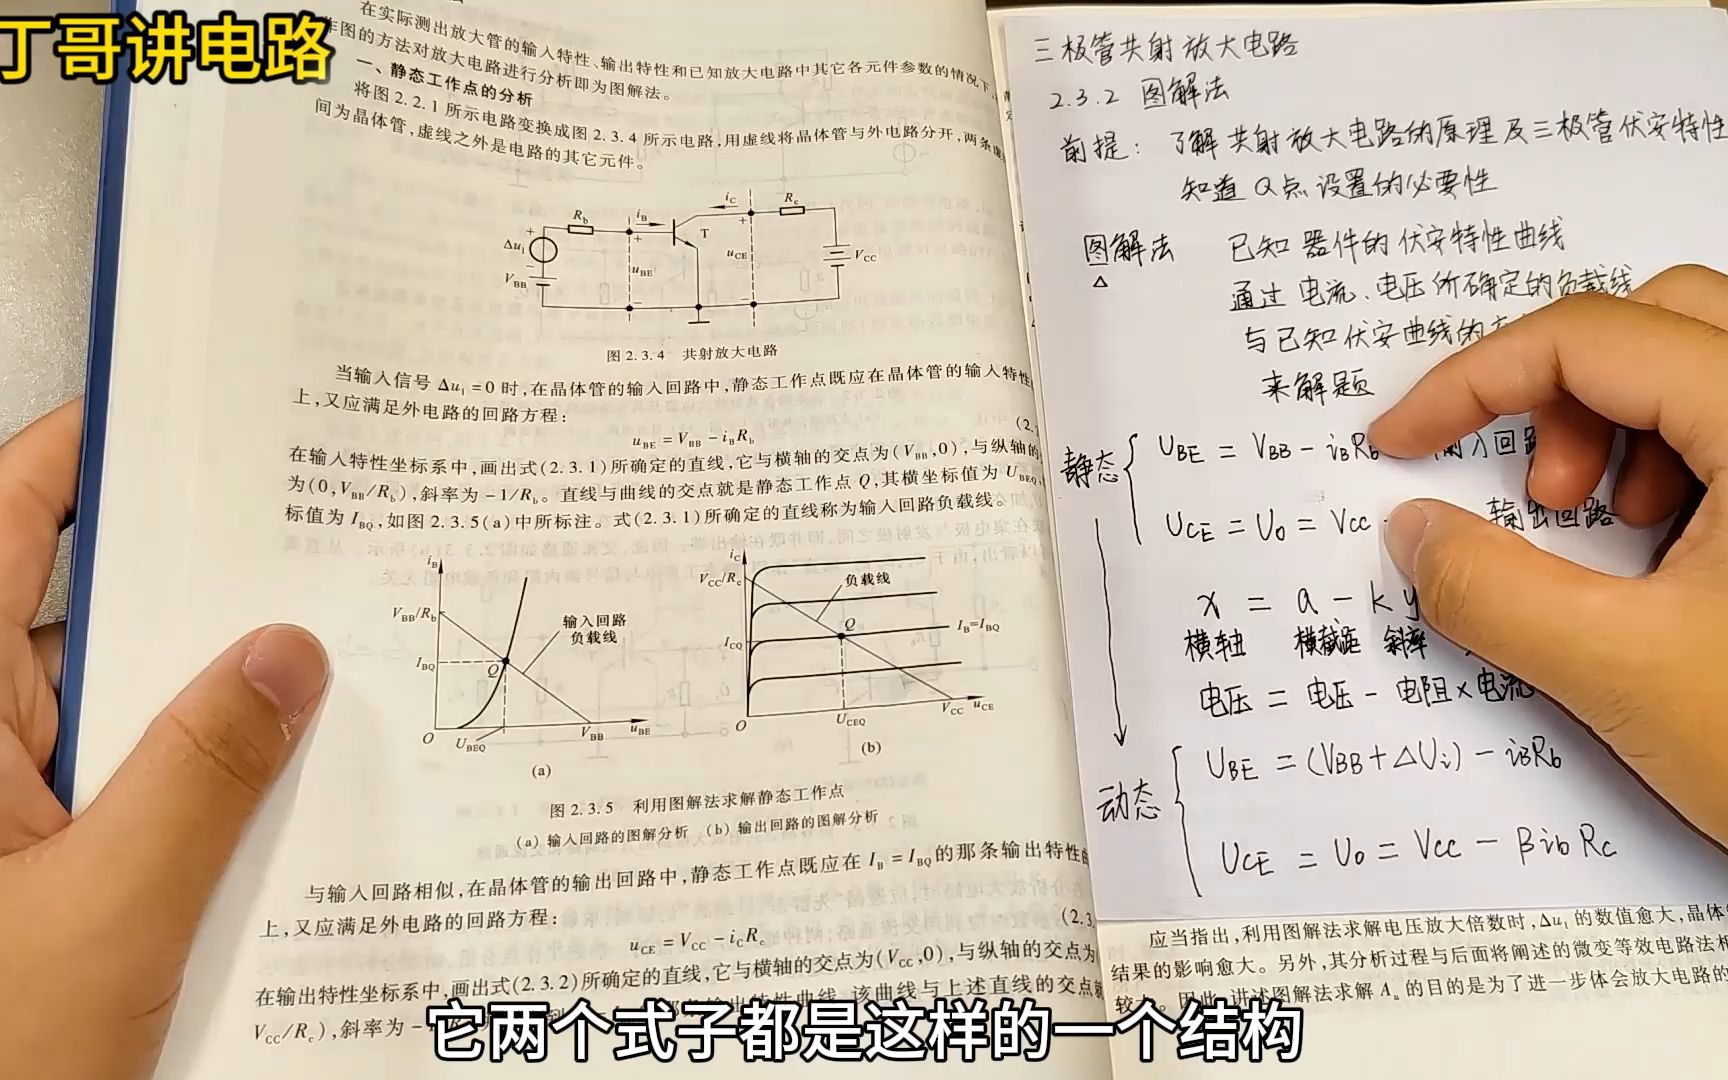 丁哥讲电路
在实际测出放大管的输入特性、输出特性和已知放大电路中其它各元件参数的情况下,
作图的方法对放大电路进行分析即为图解法。
一、静态工作点的分析
将图 2.2.1 所示电路变换成图 2.3.4 所示电路,用虚线将晶体管与外电路分开,两条虚
间为晶体管,虚线之外是电路的其它元件。
Rb
iB
iC
Rc
T
Δui
uBE
uCE
VCC
VBB
图 2.3.4 共射放大电路
当输入信号 Δui = 0 时,在晶体管的输入回路中,静态工作点既应在晶体管的输入特性
上,又应满足外电路的回路方程:
uBE = VBB − iBRb
(2.
在输入特性坐标系中,画出式(2.3.1)所确定的直线,它与横轴的交点为(VBB,0),与纵轴的
为(0,VBB/Rb),斜率为 −1/Rb。直线与曲线的交点就是静态工作点 Q,其横坐标值为 UBEQ,
标值为 IBQ,如图 2.3.5(a)中所标注。式(2.3.1)所确定的直线称为输入回路负载线。
iB
VBB/Rb
输入回路
负载线
IBQ
Q
O
UBEQ
VBB
uBE
(a)
iC
VCC/Rc
负载线
Q
ICQ
IB=IBQ
O
UCEQ
VCC
uCE
(b)
图 2.3.5 利用图解法求解静态工作点
(a) 输入回路的图解分析 (b) 输出回路的图解分析
与输入回路相似,在晶体管的输出回路中,静态工作点既应在 IB = IBQ 的那条输出特性
上,又应满足外电路的回路方程:
uCE = VCC − iCRc
(2.3.
在输出特性坐标系中,画出式(2.3.2)所确定的直线,它与横轴的交点为(VCC,0),与纵轴的交点为
VCC/Rc),斜率为 −
该曲线与上述直线的交点
三极管共射放大电路
2.3.2 图解法
前提: 了解共射放大电路的原理及三极管伏安特性
知道 Q点设置的必要性
图解法 已知器件的伏安特性曲线
△ 通过电流、电压所确定的负载线
与已知伏安曲线的
来解题
静态 UBE = VBB − iBRb 输入回
UCE = Uo = VCC 输出回路
x = a − ky
横轴 横截距 斜率
电压 = 电压 − 电阻×电流
动态 UBE = (VBB+ΔUi) − iBRb
UCE = Uo = VCC − βib Rc
应当指出,利用图解法求解电压放大倍数时,Δui 的数值愈大,晶体
结果的影响愈大。另外,其分析过程与后面将阐述的微变等效电路法相
较大。因此,讲述图解法求解 Au 的目的是为了进一步体会放大电路的
它两个式子都是这样的一个结构